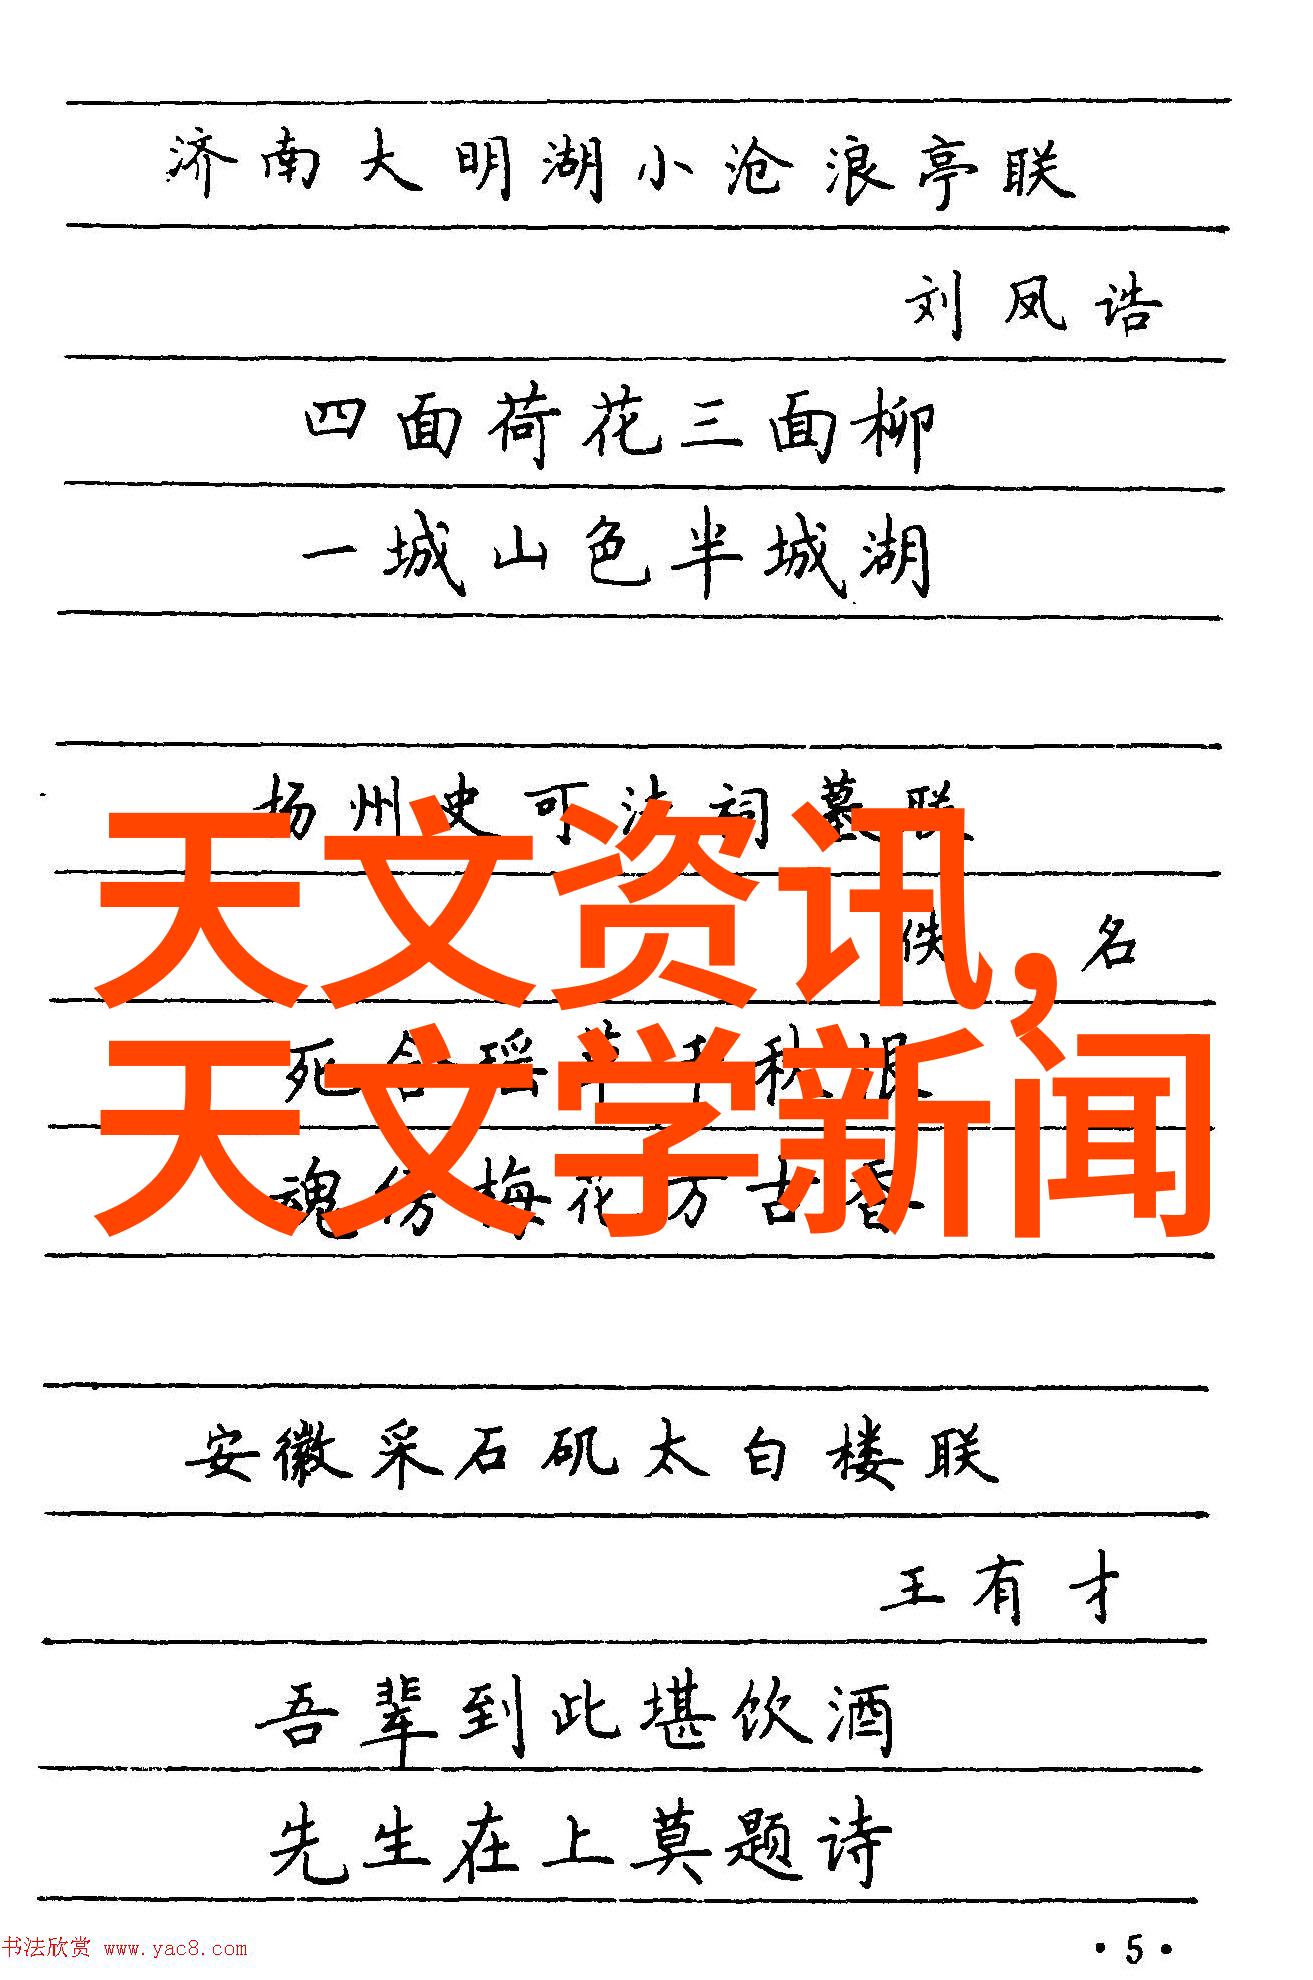 济南大明湖小沧浪亭联
刘凤诰
四面荷花三面柳
一城山色半城湖
扬州史可法祠墓联
佚名
天文资讯,
死 瑶草千秋恨
魂仿梅花万古香
天文学新闻
安徽采石矶太白楼联
王有才
吾辈到此堪饮酒
先生在上莫题诗
书法欣赏 www.yac8.com
·5·